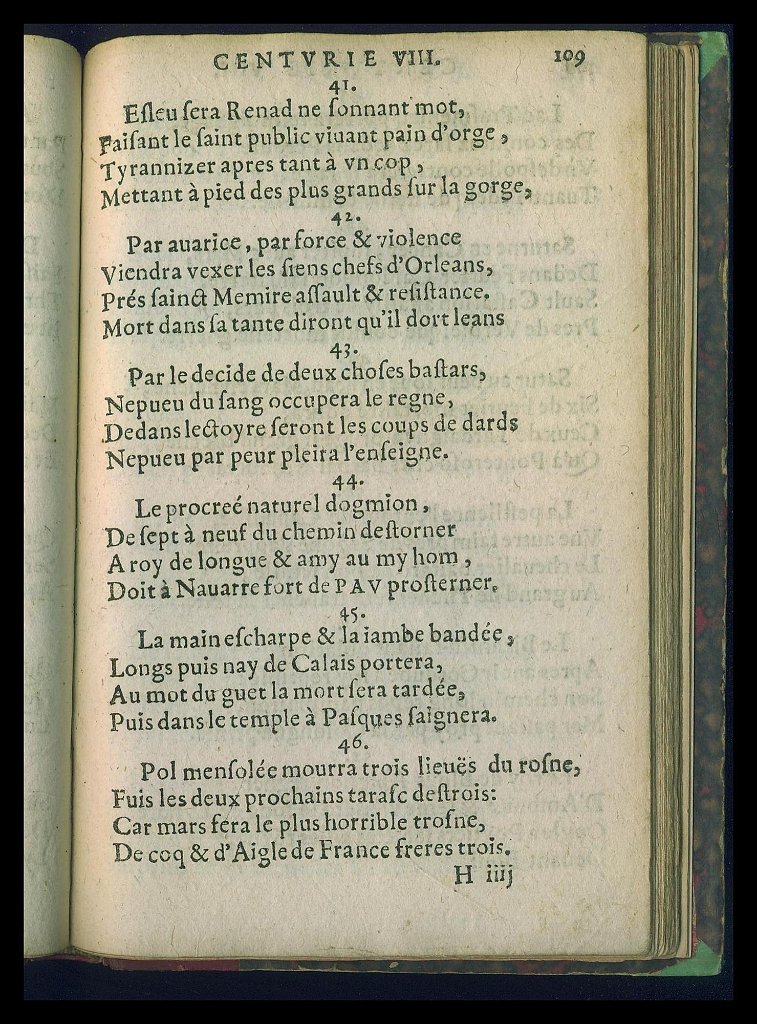 CENTVRIE VIII. 109
41.
Eſleu ſera Renad ne ſonnant mot,
Faiſant le ſaint public viuant pain d'orge,
Tyrannizer apres tant à vn cop,
Mettant à pied des plus grands ſur la gorge,
42.
Par auarice, par force & violence
Viendra vexer les ſiens chefs d'Orleans,
Prés ſainct Memire aſſault & reſiſtance.
Mort dans ſa tante diront qu'il dort leans
43.
Par le decide de deux choſes baſtars,
Nepueu du ſang occupera le regne,
Dedans lectoyre ſeront les coups de dards
Nepueu par peur pleira l'enſeigne.
44.
Le procreé naturel dogmion,
De ſept à neuf du chemin deſtorner
A roy de longue & amy au my hom,
Doit à Nauarre fort de PAV proſterner.
45.
La main eſcharpe & la iambe bandée,
Longs puis nay de Calais portera,
Au mot du guet la mort ſera tardée,
Puis dans le temple à Paſques ſaignera.
46.
Pol menſolée mourra trois lieuës du roſne,
Fuis les deux prochains taraſc deſtrois:
Car mars fera le plus horrible troſne,
De coq & d'Aigle de France freres trois.
H iiij